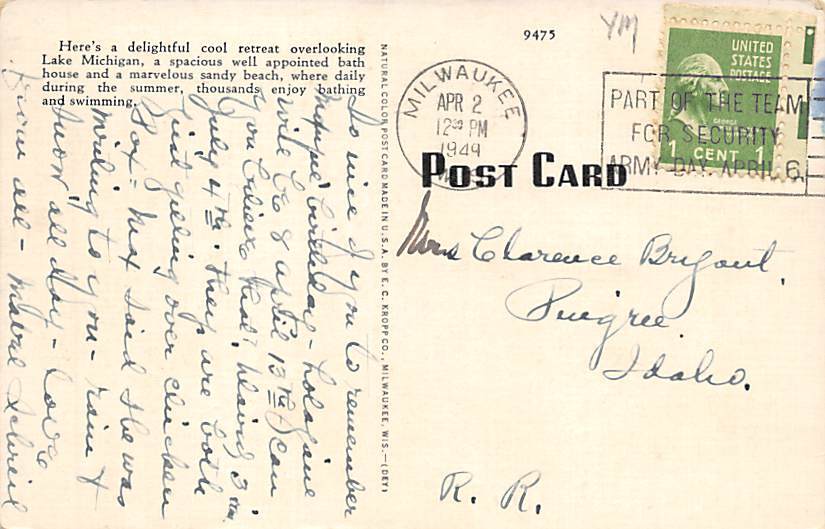 Here's a delightful cool retreat overlooking
Lake Michigan, a spacious well appointed bath
house and a marvelous sandy beach, where daily
during the summer, thousands enjoy bathing
and swimming.
So nice of you to remember
birthday -
will be 8 April 13th. Can
you believe that? having 3
July 4th. They are both
just getting over chicken
Pox - said she was
writing to you - rain &
snow all day - Love
from all - Mabel
NATURAL COLOR POST CARD MADE IN U.S.A. BY E. C. KROPP CO., MILWAUKEE, WIS.—(DEY)
9475
YM
MILWAUKEE
APR 2
12 30 PM
1949
WIS.
PART OF THE TEAM
FOR SECURITY
ARMY DAY. APRIL 6.
UNITED
STATES
POSTAGE
GEORGE
1 CENT 1
POST CARD
Mrs Clarence Bryant.
Pingree
Idaho.
R. R.